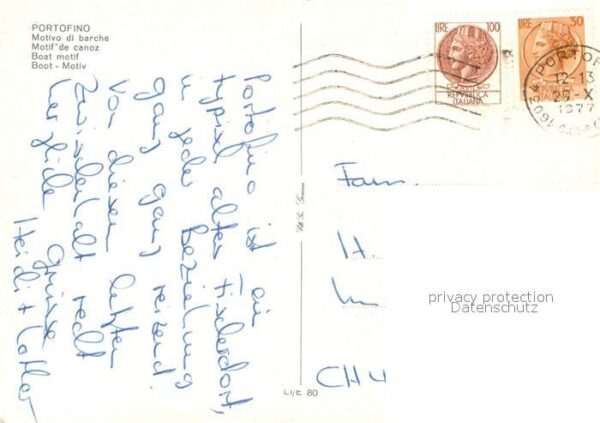 PORTOFINO
Motivo di barche
Motif de canoz
Boat motif
Boot - Motiv
Portofino ist ein
typisch altes Fischerdorf,
in jeder Beziehung
ganz ganz reizend.
Von diesem letzten
Zwischenhalt recht
herzliche Grüsse
Heidi +
LIRE 100
REPUBBLICA
ITALIANA
LIRE 30
PORTOFINO
12-13
26-X
1977
Fam.
CH 4
privacy protection
Datenschutz
LI/E 80